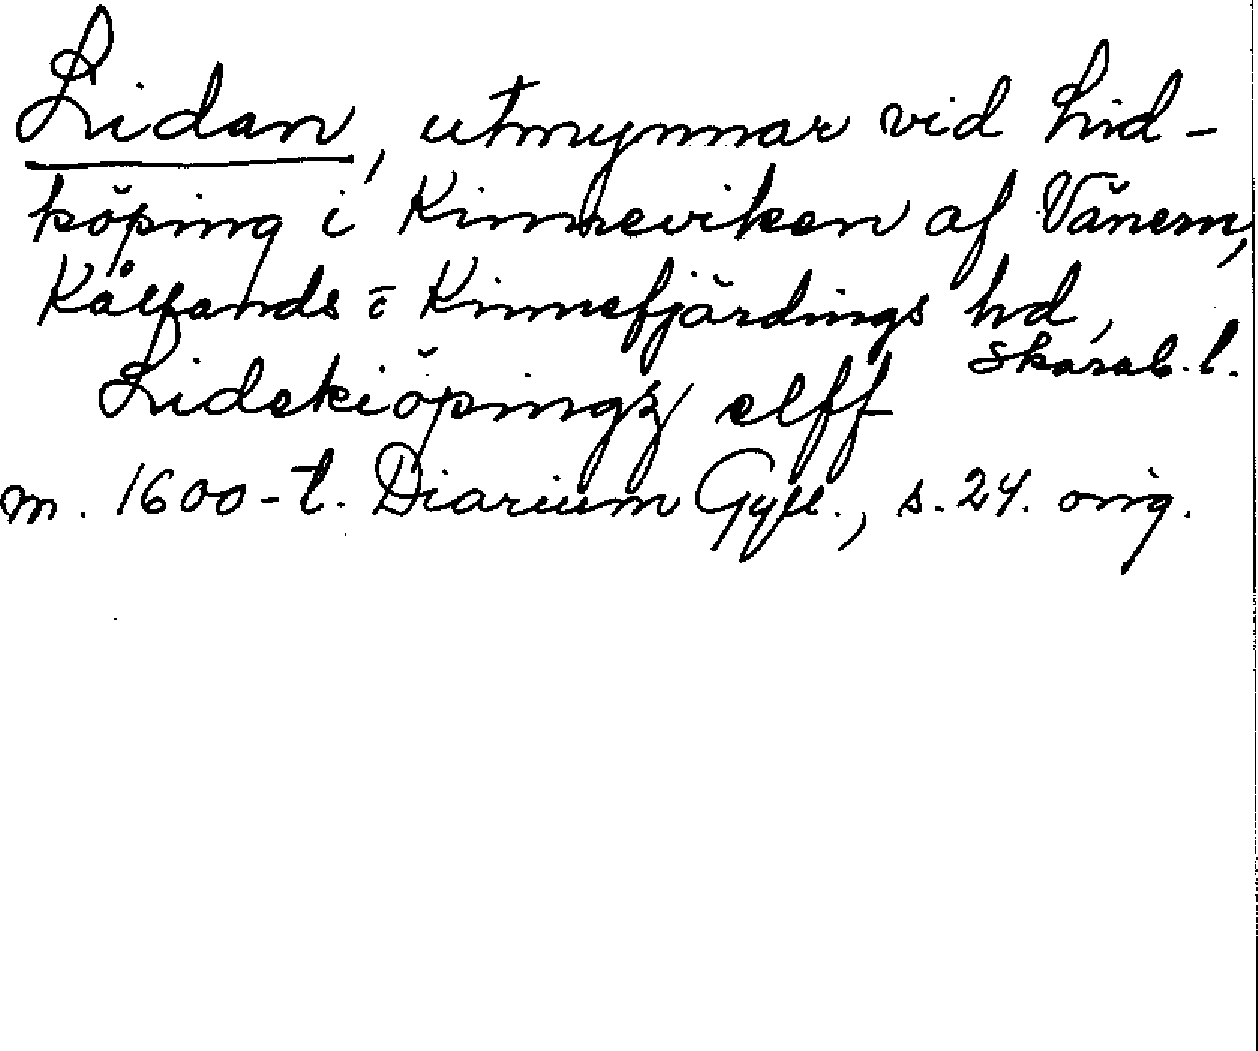 Lidan, utmynnar vid Lid-
köping i Kinneviken af Vänern,
Kållands o Kinnefjärdings hd,
Skarab. l.
Lidekiöpingz elff
m. 1600-t. Diarium Gyll., s. 24. orig.